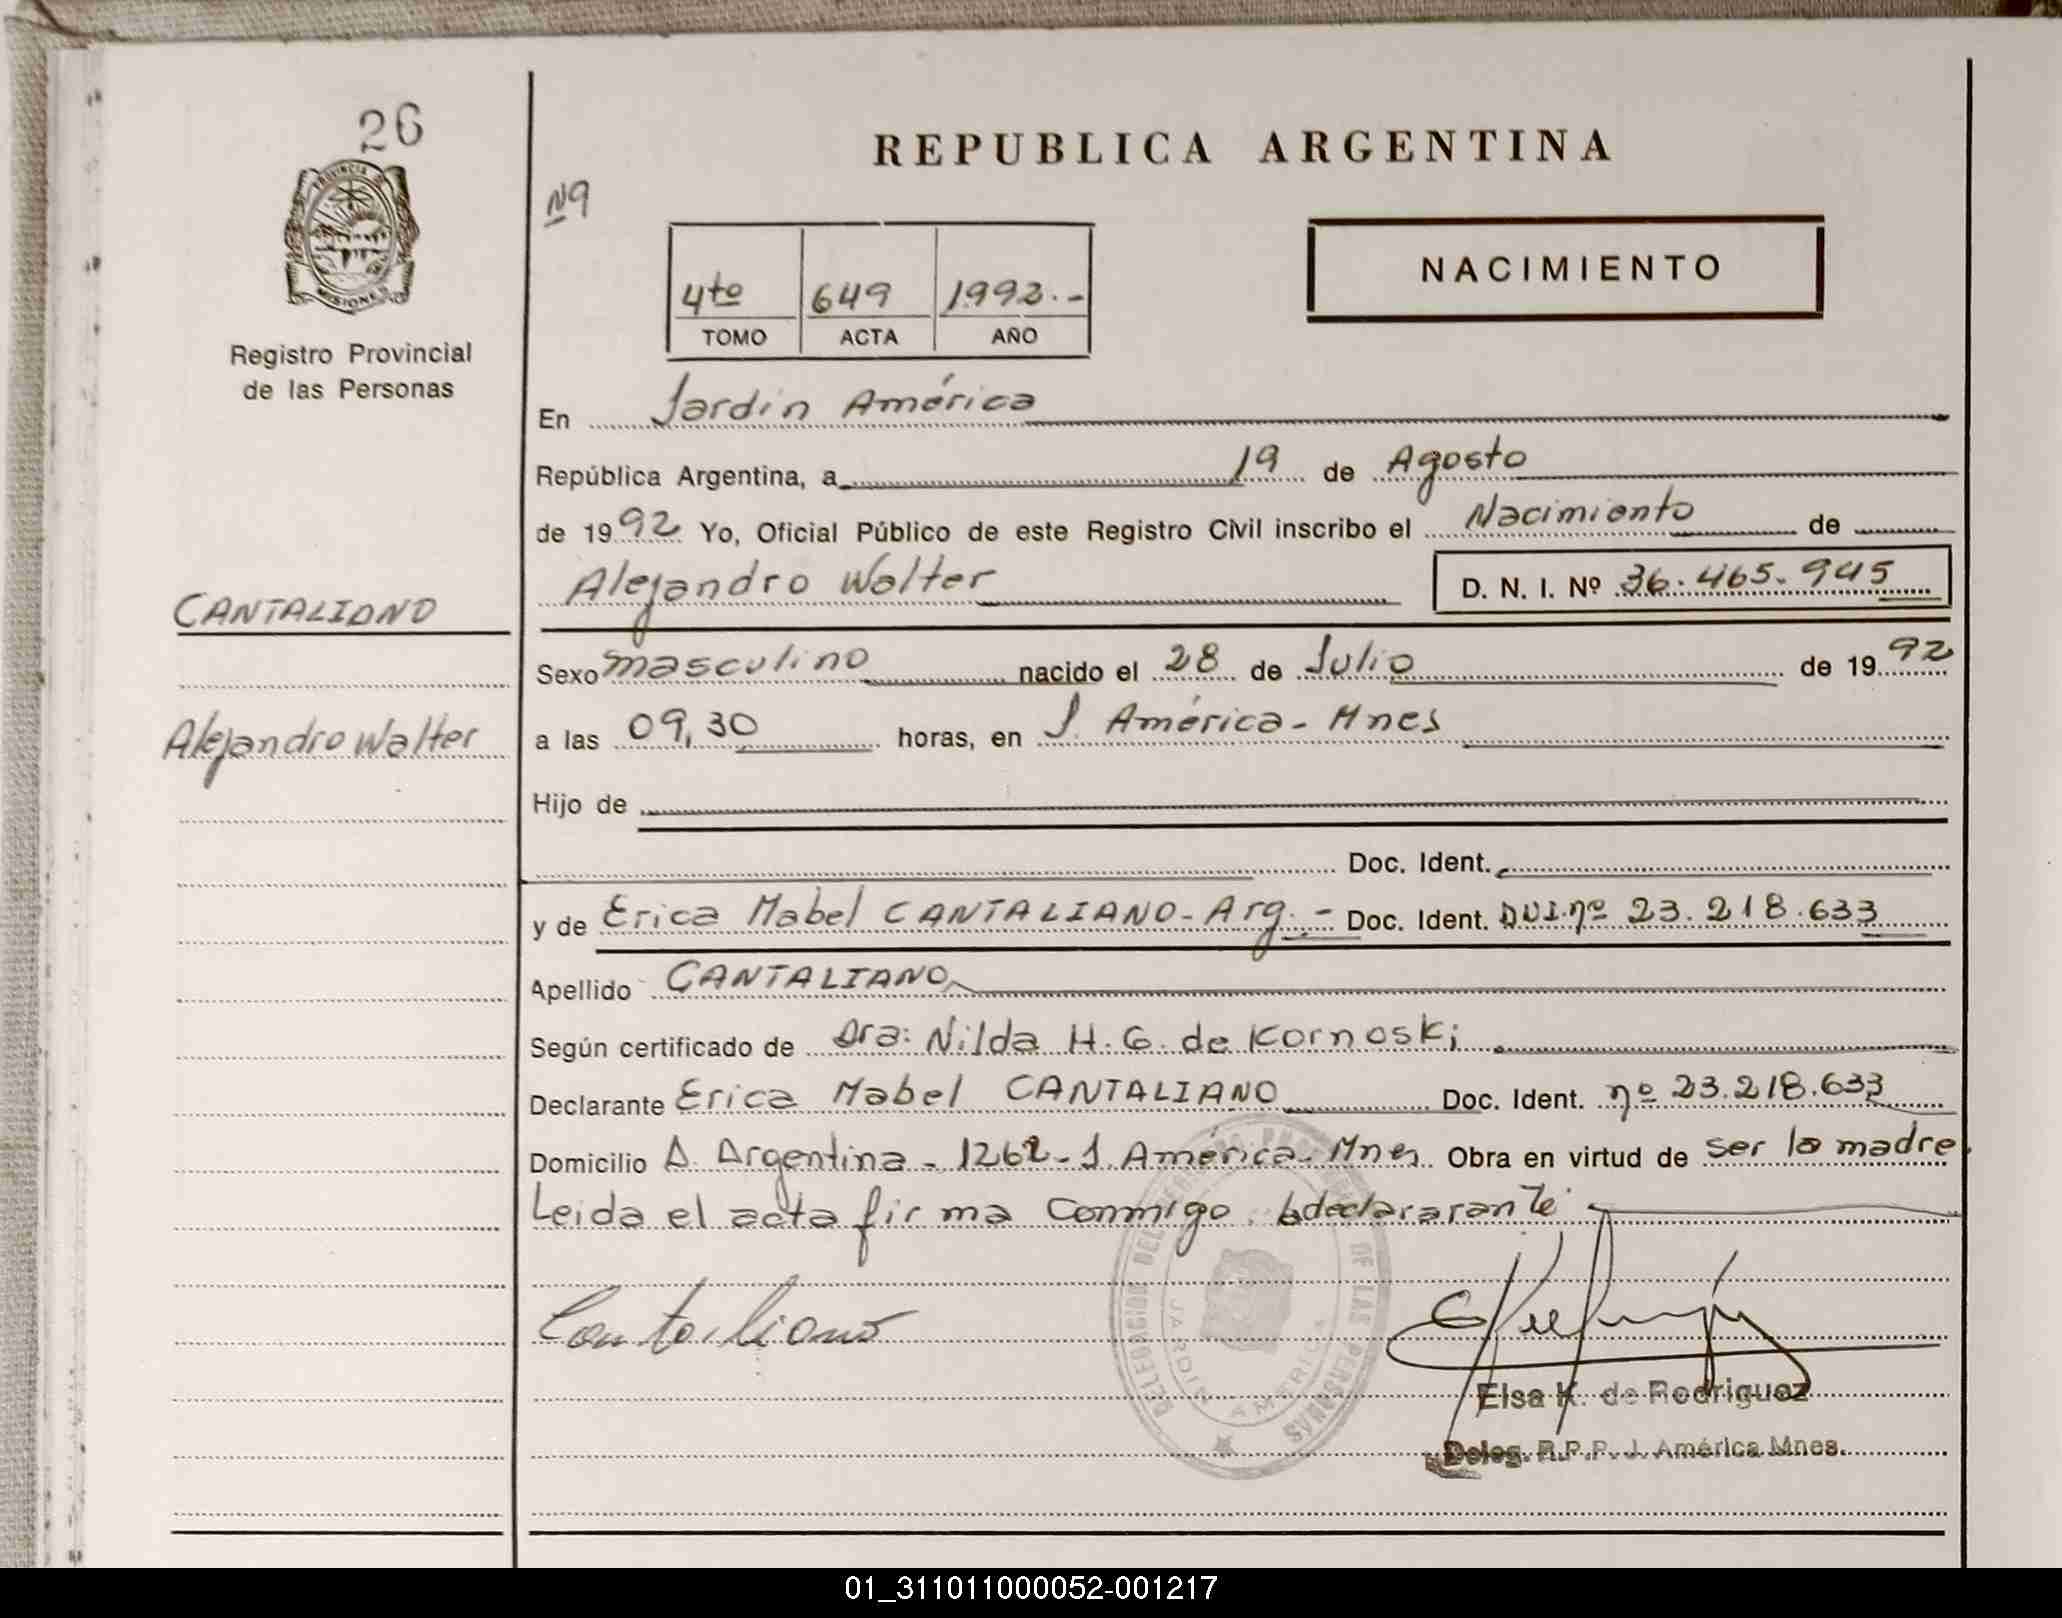 26
PROVINCIA DE
MISIONES
Registro Provincial
de las Personas
CANTALIANO
Alejandro Walter
REPUBLICA ARGENTINA
Nº
NACIMIENTO
4to 649 1992.-
TOMO ACTA AÑO
En Jardin América
República Argentina, a 19 de Agosto
de 1992 Yo, Oficial Público de este Registro Civil inscribo el Nacimiento de
Alejandro Walter D. N. I. Nº 36.465.945
Sexo masculino nacido el 28 de Julio de 1992
a las 09,30 horas, en J. América - Mnes
Hijo de
Doc. Ident.
y de Erica Mabel CANTALIANO - Arg. - Doc. Ident. DNI. nº 23.218.633
Apellido CANTALIANO
Según certificado de Dra: Nilda H. G. de Kornoski
Declarante Erica Mabel CANTALIANO Doc. Ident. nº 23.218.633
Domicilio A. Argentina - 1262 - J. América - Mnes Obra en virtud de ser la madre.
Leida el acta firma conmigo, la declararante
Cantaliano
DELEGACION DEL REGISTRO PROVINCIAL DE LAS PERSONAS
JARDIN AMERICA
Elsa K. de Rodriguez
Deleg. R.P.P. J. América Mnes.
01_311011000052-001217